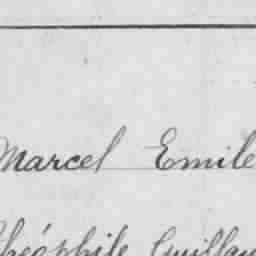 Marcel Emile
Théophile Guillau